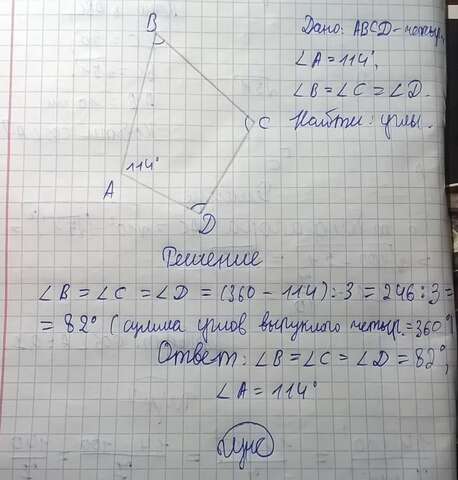 B
Дано: ABCD - четыр.
∠A = 114°,
∠B = ∠C = ∠D.
Найти: углы.
C
114°
A
D
Решение
∠B = ∠C = ∠D = (360 - 114) : 3 = 246 : 3 =
= 82° (сумма углов выпуклого четыр. = 360°)
Ответ: ∠B = ∠C = ∠D = 82°,
∠A = 114°